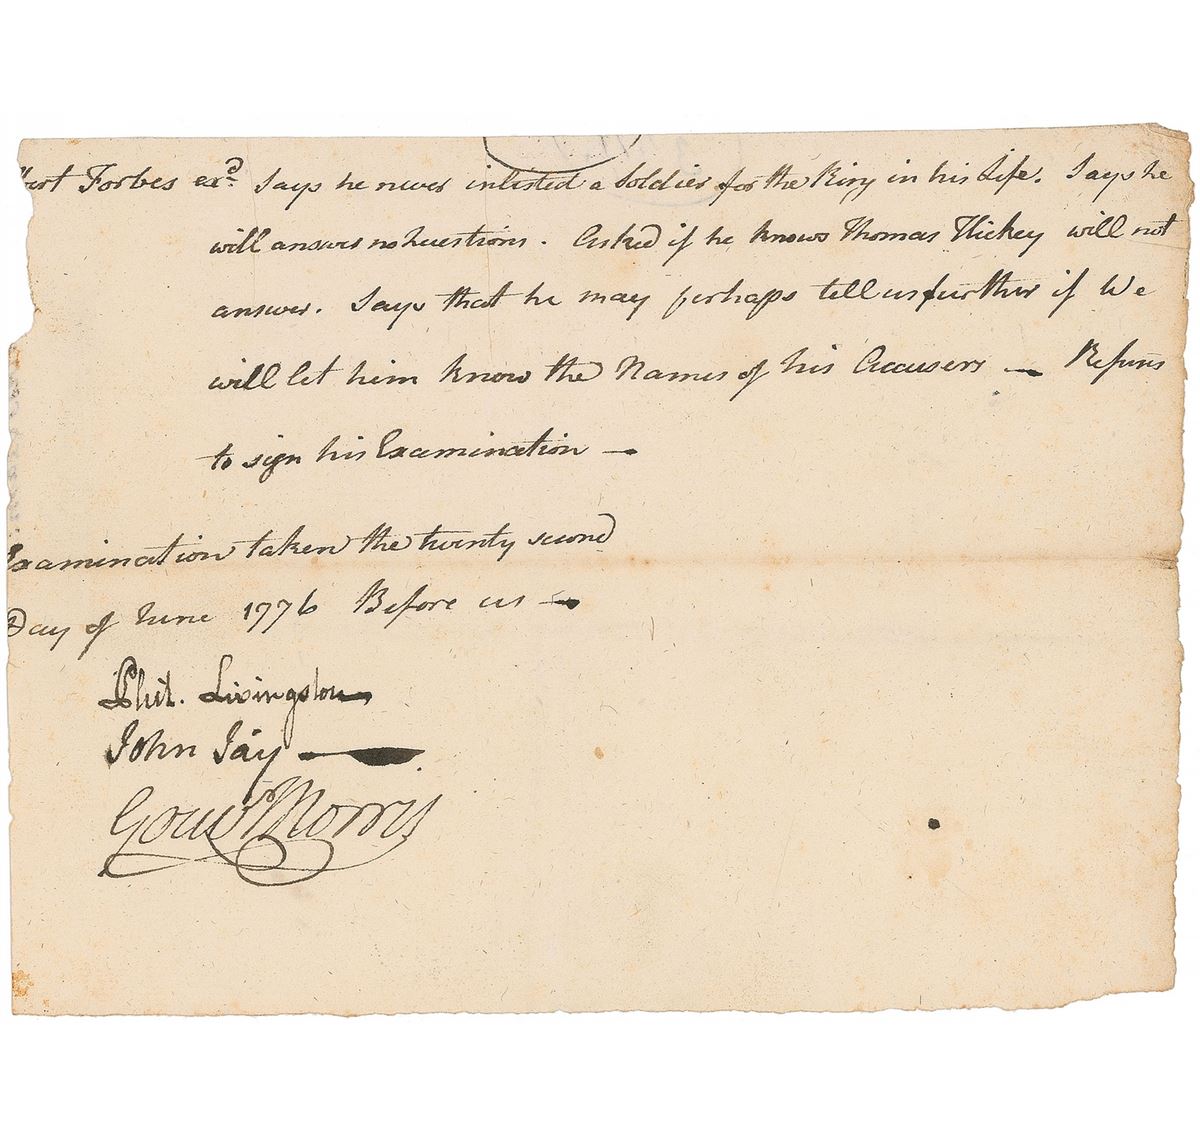 bert Forbes exd. Says he never inlisted a Soldier for the King in his Life. Says he
will answer no Questions. Asked if he knows Thomas Hickey will not
answer. Says that he may perhaps tell us further if We
will let him know the Names of his Accusers — Refuses
to sign his Examination —
Examination taken the twenty second
Day of June 1776 Before us —
Phil. Livingston
John Jay
Gouvr Morris